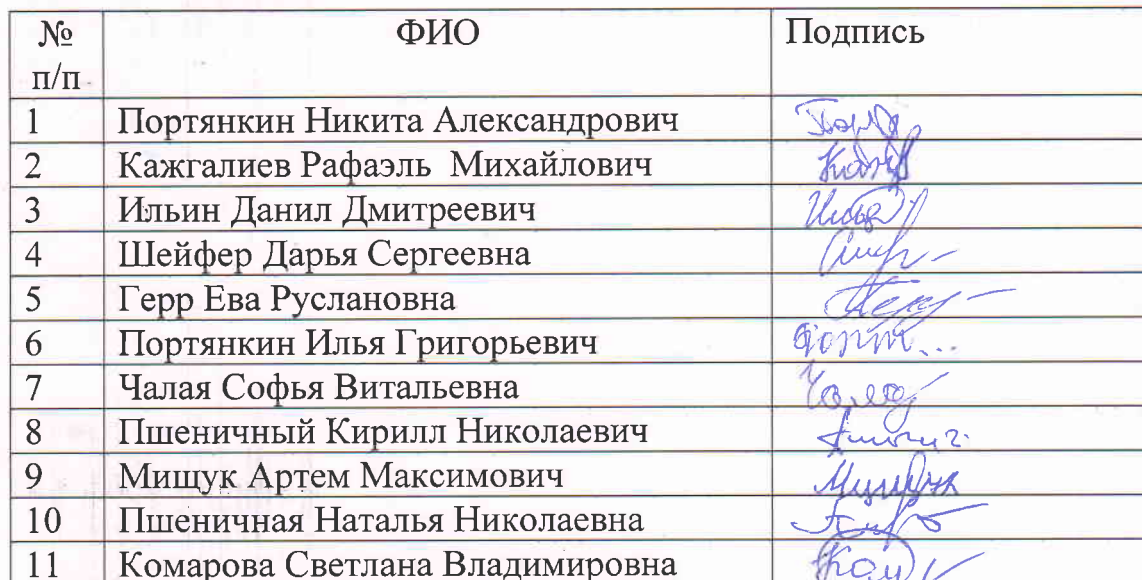 № ФИО Подпись
п/п
1 Портянкин Никита Александрович
2 Кажгалиев Рафаэль Михайлович
3 Ильин Данил Дмитреевич
4 Шейфер Дарья Сергеевна
5 Герр Ева Руслановна
6 Портянкин Илья Григорьевич
7 Чалая Софья Витальевна
8 Пшеничный Кирилл Николаевич
9 Мищук Артем Максимович
10 Пшеничная Наталья Николаевна
11 Комарова Светлана Владимировна